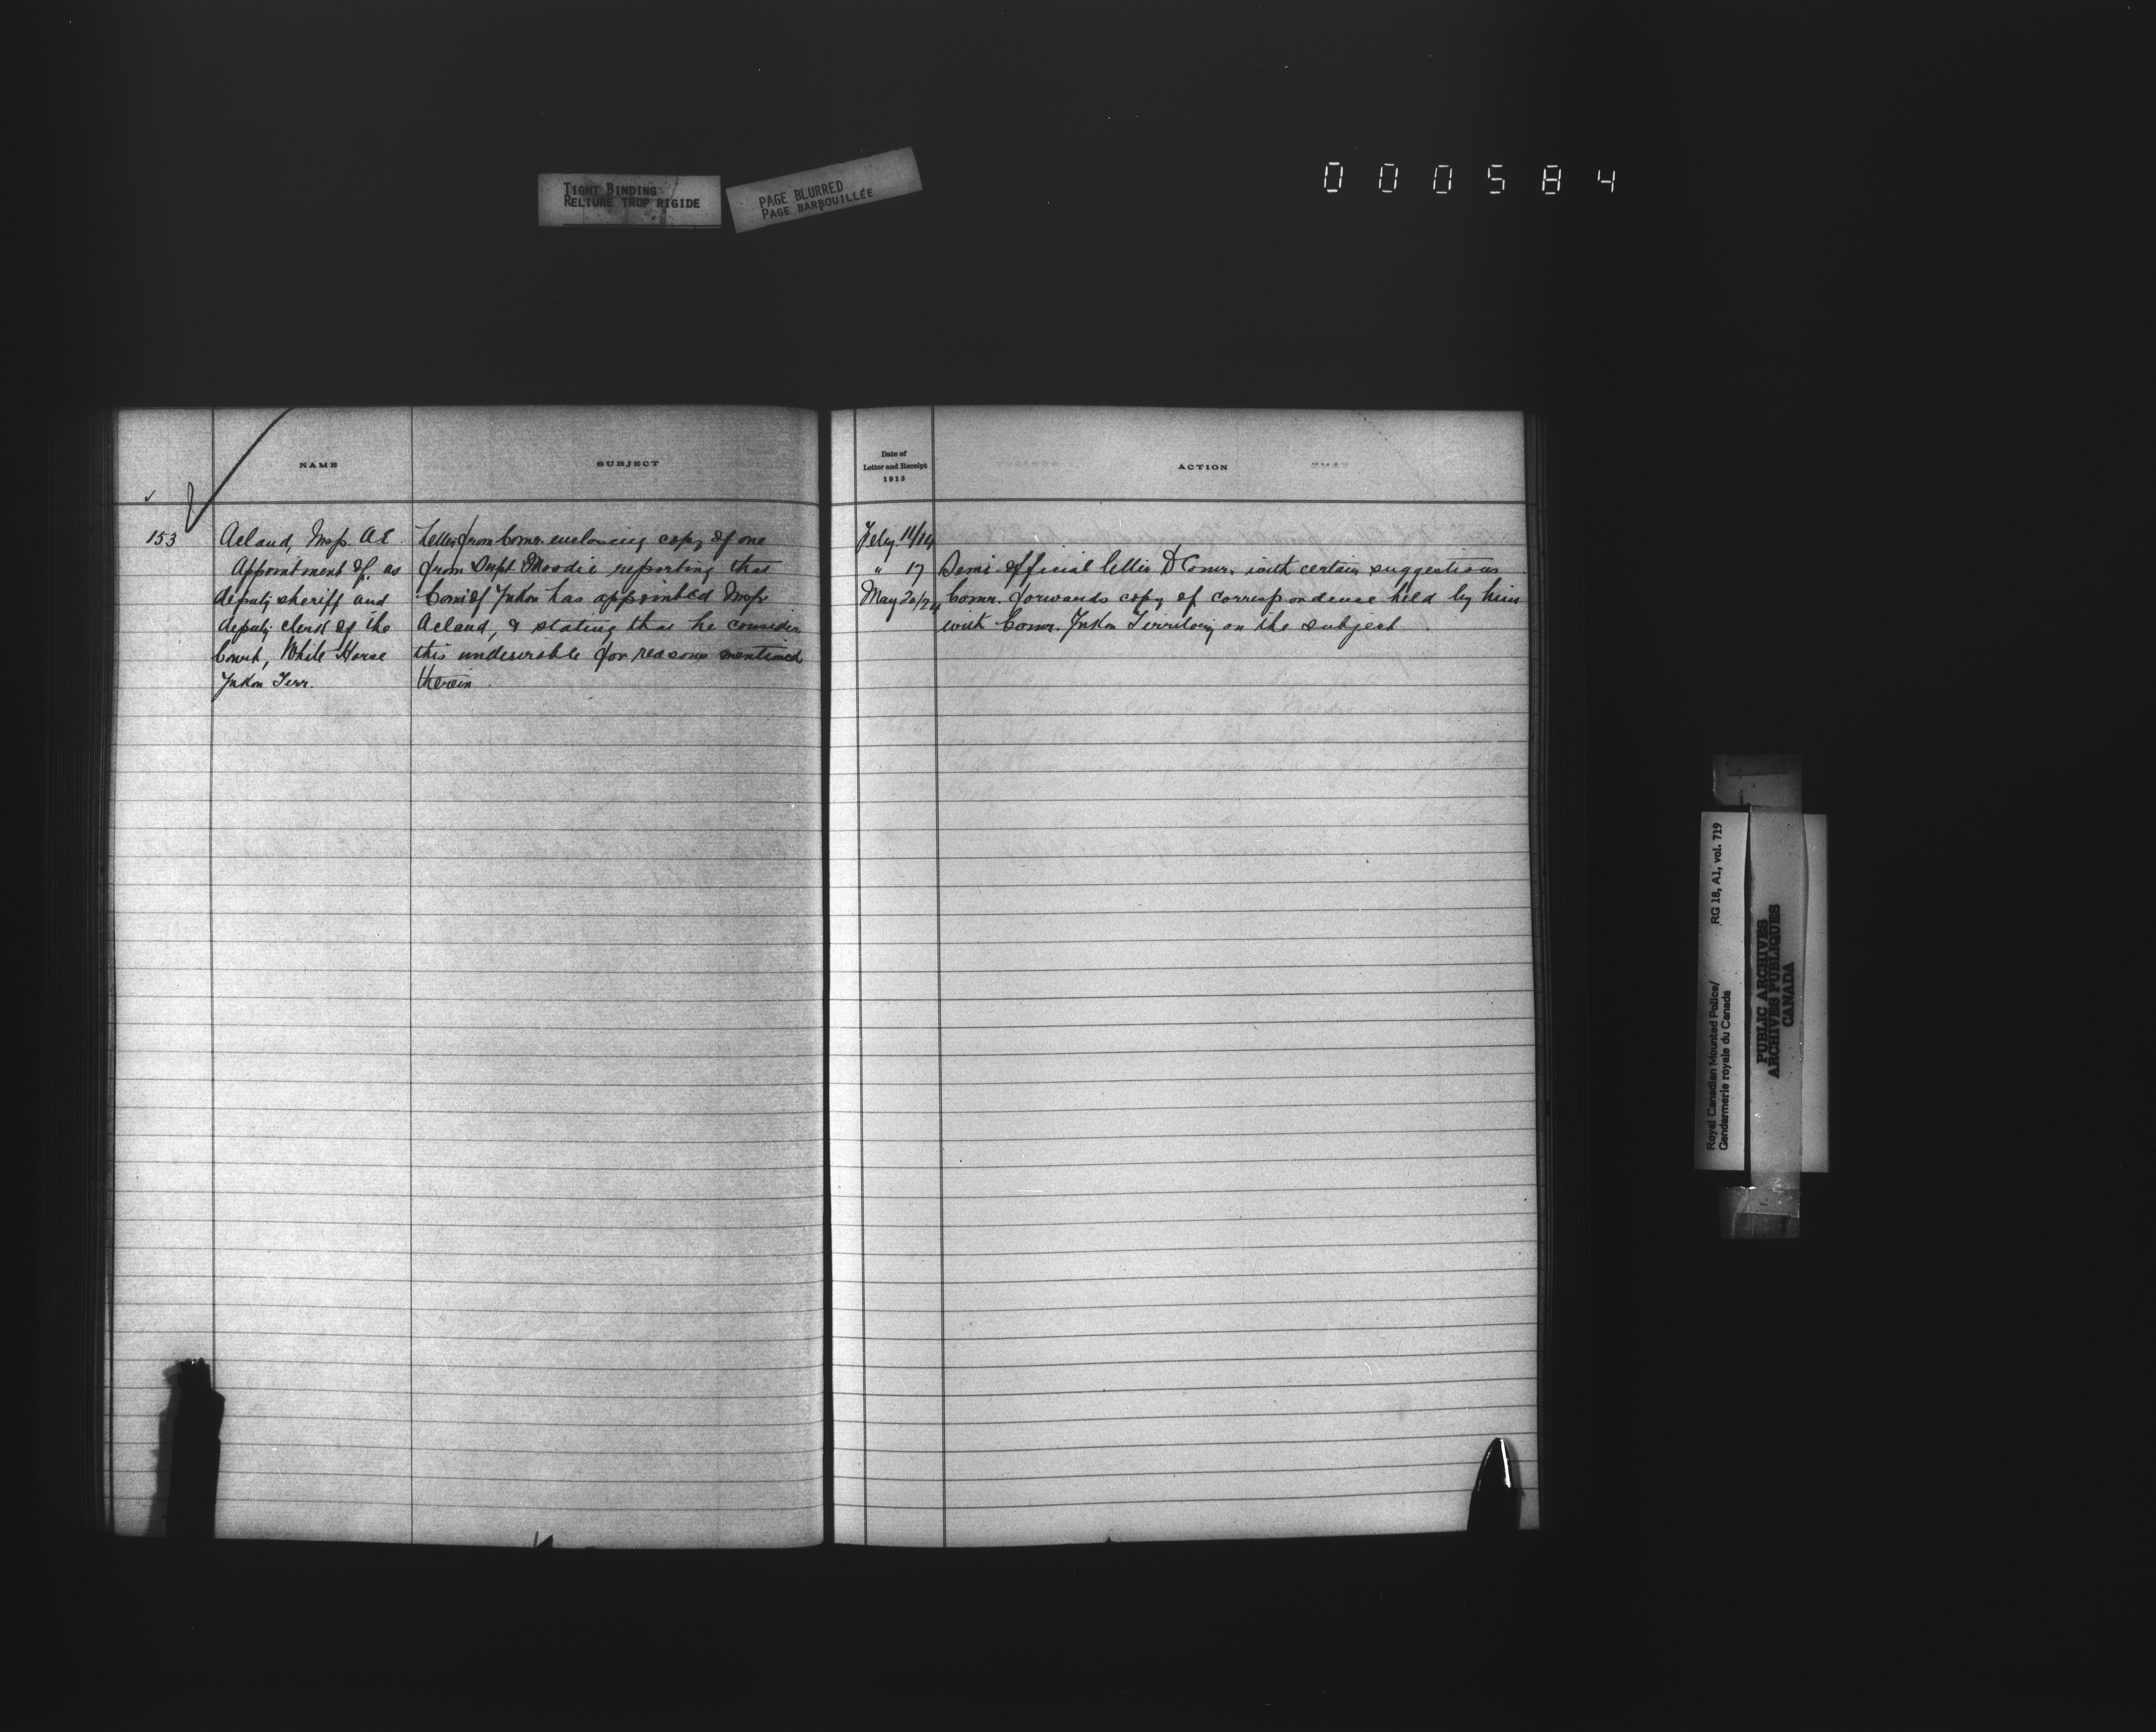 TIGHT BINDING
RELIURE TROP RIGIDE
PAGE BLURRED
PAGE BARBOUILLÉE
000584
NAME
SUBJECT
153
Acland, Insp. A.E.
Appointment of, as
deputy sheriff and
deputy clerk of the
Court, White Horse
Yukon Terr.
Letter from Comr. enclosing copy of one
from Supt. Moodie reporting that
Comr of Yukon has appointed Insp.
Acland, & stating that he considers
this undesirable for reasons mentioned
therein.
Date of
Letter and Receipt
1913
ACTION
Feby. 11/14
" 17 Semi-official letter to Comr. with certain suggestions
May 20/24 Comr. forwards copy of correspondence held by him
with Comr. Yukon Territory on the subject.
Royal Canadian Mounted Police/
Gendarmerie royale du Canada
RG 18, A1, vol. 719
PUBLIC ARCHIVES
ARCHIVES PUBLIQUES
CANADA